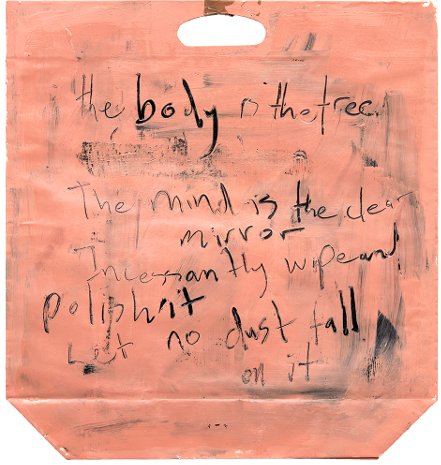 the body is the tree
The mind is the clear
mirror
Incessantly wipe and
polish it
Let no dust fall
on it